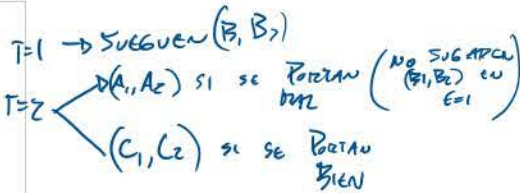 T=1 → JUEGUEN (B1, B2)
T=2
(A1, A2) SI SE PORTAN MAL (NO JUGARON (B1, B2) EN t=1)
(C1, C2) SI SE PORTAN BIEN